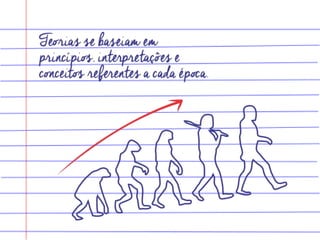 Teorias se baseiam em
princípios, interpretações e
conceitos referentes a cada época.